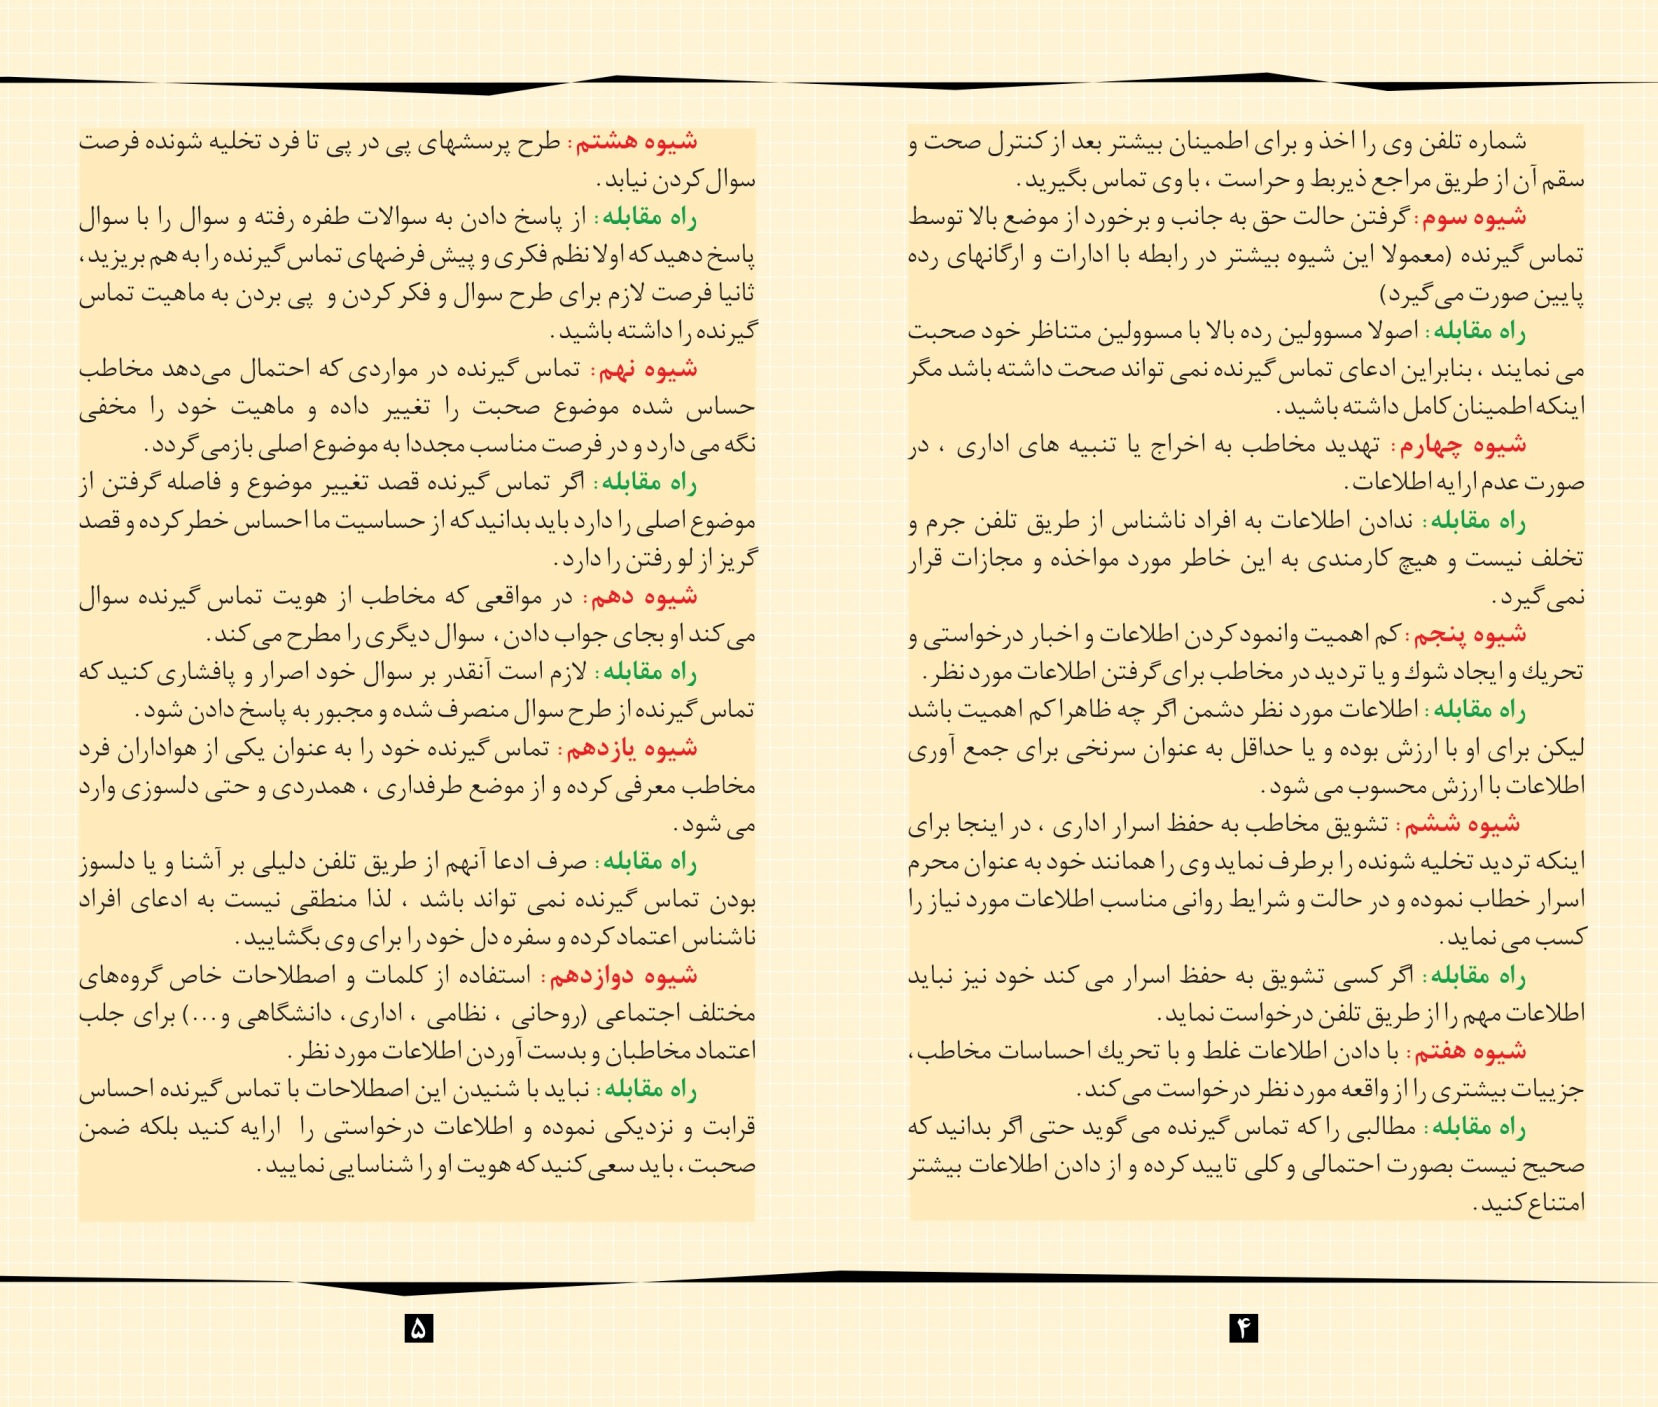 شماره تلفن وی را اخذ و برای اطمینان بیشتر بعد از کنترل صحت و
سقم آن از طریق مراجع ذیربط و حراست ، با وی تماس بگیرید .
شیوه سوم : گرفتن حالت حق به جانب و برخورد از موضع بالا توسط
تماس گیرنده (معمولا این شیوه بیشتر در رابطه با ادارات و ارگانهای رده
پایین صورت می‌گیرد)
راه مقابله : اصولا مسوولین رده بالا با مسوولین متناظر خود صحبت
می نمایند ، بنابراین ادعای تماس گیرنده نمی تواند صحت داشته باشد مگر
اینکه اطمینان کامل داشته باشید .
شیوه چهارم : تهدید مخاطب به اخراج یا تنبیه های اداری ، در
صورت عدم ارایه اطلاعات .
راه مقابله : ندادن اطلاعات به افراد ناشناس از طریق تلفن جرم و
تخلف نیست و هیچ کارمندی به این خاطر مورد مواخذه و مجازات قرار
نمی گیرد .
شیوه پنجم : کم اهمیت وانمود کردن اطلاعات و اخبار درخواستی و
تحریك و ایجاد شوك و یا تردید در مخاطب برای گرفتن اطلاعات مورد نظر .
راه مقابله : اطلاعات مورد نظر دشمن اگر چه ظاهرا کم اهمیت باشد
لیکن برای او با ارزش بوده و یا حداقل به عنوان سرنخی برای جمع آوری
اطلاعات با ارزش محسوب می شود .
شیوه ششم : تشویق مخاطب به حفظ اسرار اداری ، در اینجا برای
اینکه تردید تخلیه شونده را برطرف نماید وی را همانند خود به عنوان محرم
اسرار خطاب نموده و در حالت و شرایط روانی مناسب اطلاعات مورد نیاز را
کسب می نماید .
راه مقابله : اگر کسی تشویق به حفظ اسرار می کند خود نیز نباید
اطلاعات مهم را از طریق تلفن درخواست نماید .
شیوه هفتم : با دادن اطلاعات غلط و با تحریك احساسات مخاطب ،
جزییات بیشتری را از واقعه مورد نظر درخواست می کند .
راه مقابله : مطالبی را که تماس گیرنده می گوید حتی اگر بدانید که
صحیح نیست بصورت احتمالی و کلی تایید کرده و از دادن اطلاعات بیشتر
امتناع کنید .
۴
شیوه هشتم : طرح پرسشهای پی در پی تا فرد تخلیه شونده فرصت
سوال کردن نیابد .
راه مقابله : از پاسخ دادن به سوالات طفره رفته و سوال را با سوال
پاسخ دهید که اولا نظم فکری و پیش فرضهای تماس گیرنده را به هم بریزید ،
ثانیا فرصت لازم برای طرح سوال و فکر کردن و پی بردن به ماهیت تماس
گیرنده را داشته باشید .
شیوه نهم : تماس گیرنده در مواردی که احتمال می‌دهد مخاطب
حساس شده موضوع صحبت را تغییر داده و ماهیت خود را مخفی
نگه می دارد و در فرصت مناسب مجددا به موضوع اصلی بازمی گردد .
راه مقابله : اگر تماس گیرنده قصد تغییر موضوع و فاصله گرفتن از
موضوع اصلی را دارد باید بدانید که از حساسیت ما احساس خطر کرده و قصد
گریز از لو رفتن را دارد .
شیوه دهم : در مواقعی که مخاطب از هویت تماس گیرنده سوال
می کند او بجای جواب دادن ، سوال دیگری را مطرح می کند .
راه مقابله : لازم است آنقدر بر سوال خود اصرار و پافشاری کنید که
تماس گیرنده از طرح سوال منصرف شده و مجبور به پاسخ دادن شود .
شیوه یازدهم : تماس گیرنده خود را به عنوان یکی از هواداران فرد
مخاطب معرفی کرده و از موضع طرفداری ، همدردی و حتی دلسوزی وارد
می شود .
راه مقابله : صرف ادعا آنهم از طریق تلفن دلیلی بر آشنا و یا دلسوز
بودن تماس گیرنده نمی تواند باشد ، لذا منطقی نیست به ادعای افراد
ناشناس اعتماد کرده و سفره دل خود را برای وی بگشایید .
شیوه دوازدهم : استفاده از کلمات و اصطلاحات خاص گروه‌های
مختلف اجتماعی (روحانی ، نظامی ، اداری، دانشگاهی و...) برای جلب
اعتماد مخاطبان و بدست آوردن اطلاعات مورد نظر .
راه مقابله : نباید با شنیدن این اصطلاحات با تماس گیرنده احساس
قرابت و نزدیکی نموده و اطلاعات درخواستی را ارایه کنید بلکه ضمن
صحبت ، باید سعی کنید که هویت او را شناسایی نمایید .
۵